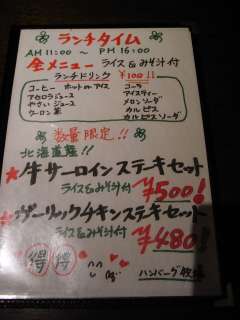 ランチタイム
AM 11:00 ～ PM 16:00
全メニュー ライス&みそ汁付
ランチドリンク ¥100!!
コーヒー ホット or アイス コーラ
アセロラジュース アイスティー
やさいジュース メロンソーダ
ウーロン茶 カルピス
カルピスソーダ
数量限定!!
北海道産!!
★牛サーロインステーキセット
ライス&みそ汁付 ¥500!
★ガーリックチキンステーキセット
ライス&みそ汁付 ¥480!
得 得
ハンバーグ牧場